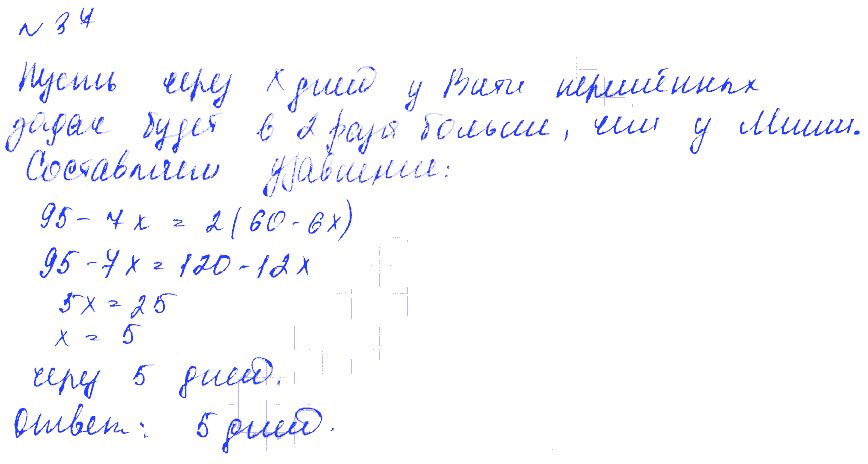 № 34
Пусть через x дней у Вити нерешённых
задач будет в 2 раза больше, чем у Миши.
Составляем уравнение:
95 - 7x = 2(60 - 6x)
95 - 7x = 120 - 12x
5x = 25
x = 5
через 5 дней.
Ответ: 5 дней.